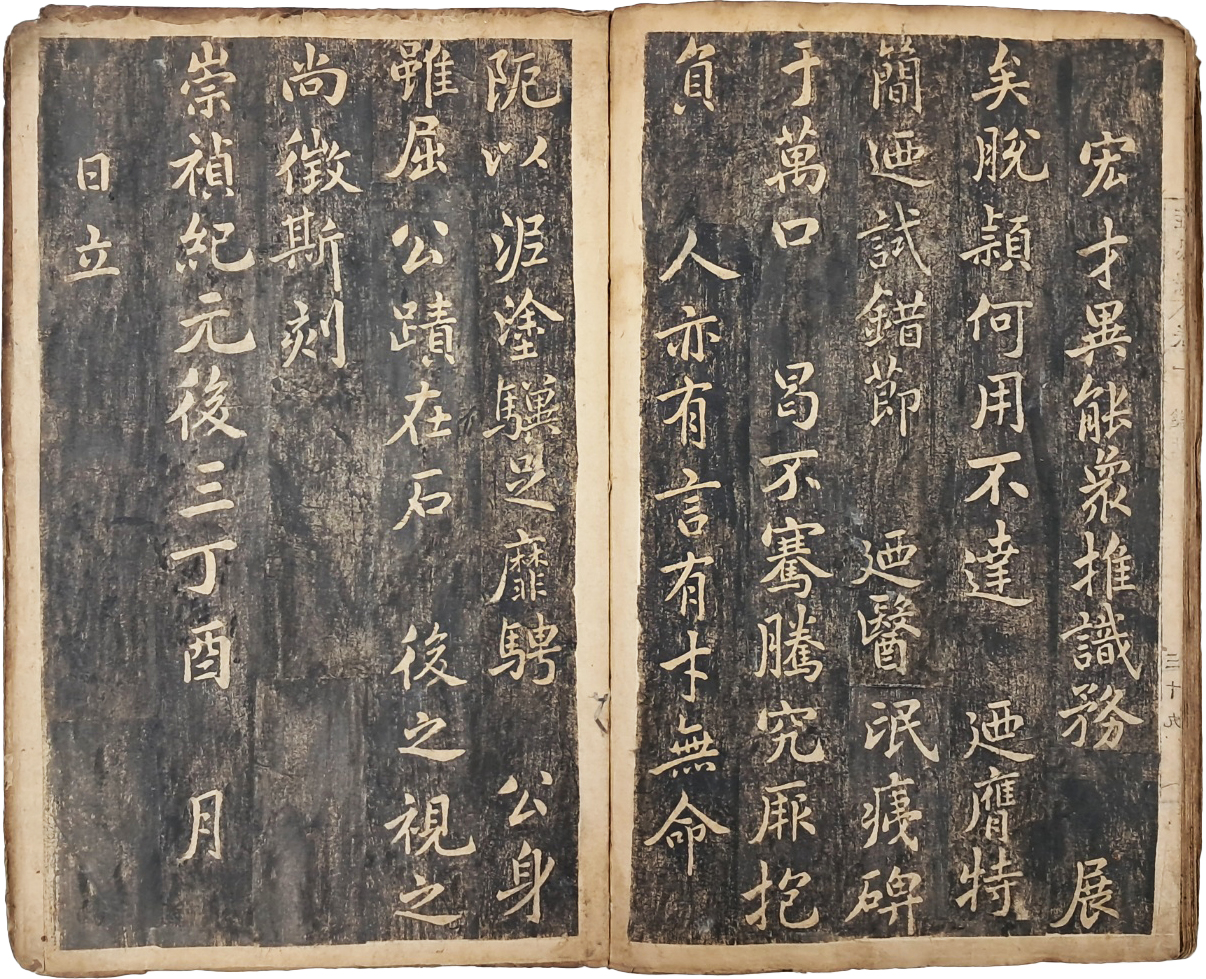 宏才異能衆推識務 展
矣脫穎何用不達 迺膺特
簡迺試錯節 迺醫 泯瘼碑
于萬口 曷不騫騰究厥抱
負 人亦有言有才無命
阨以 泥塗驥足靡騁 公身
雖屈 公蹟在石 後之視之
尚徵斯刻
崇禎紀元後三丁酉 月
日立
三十九